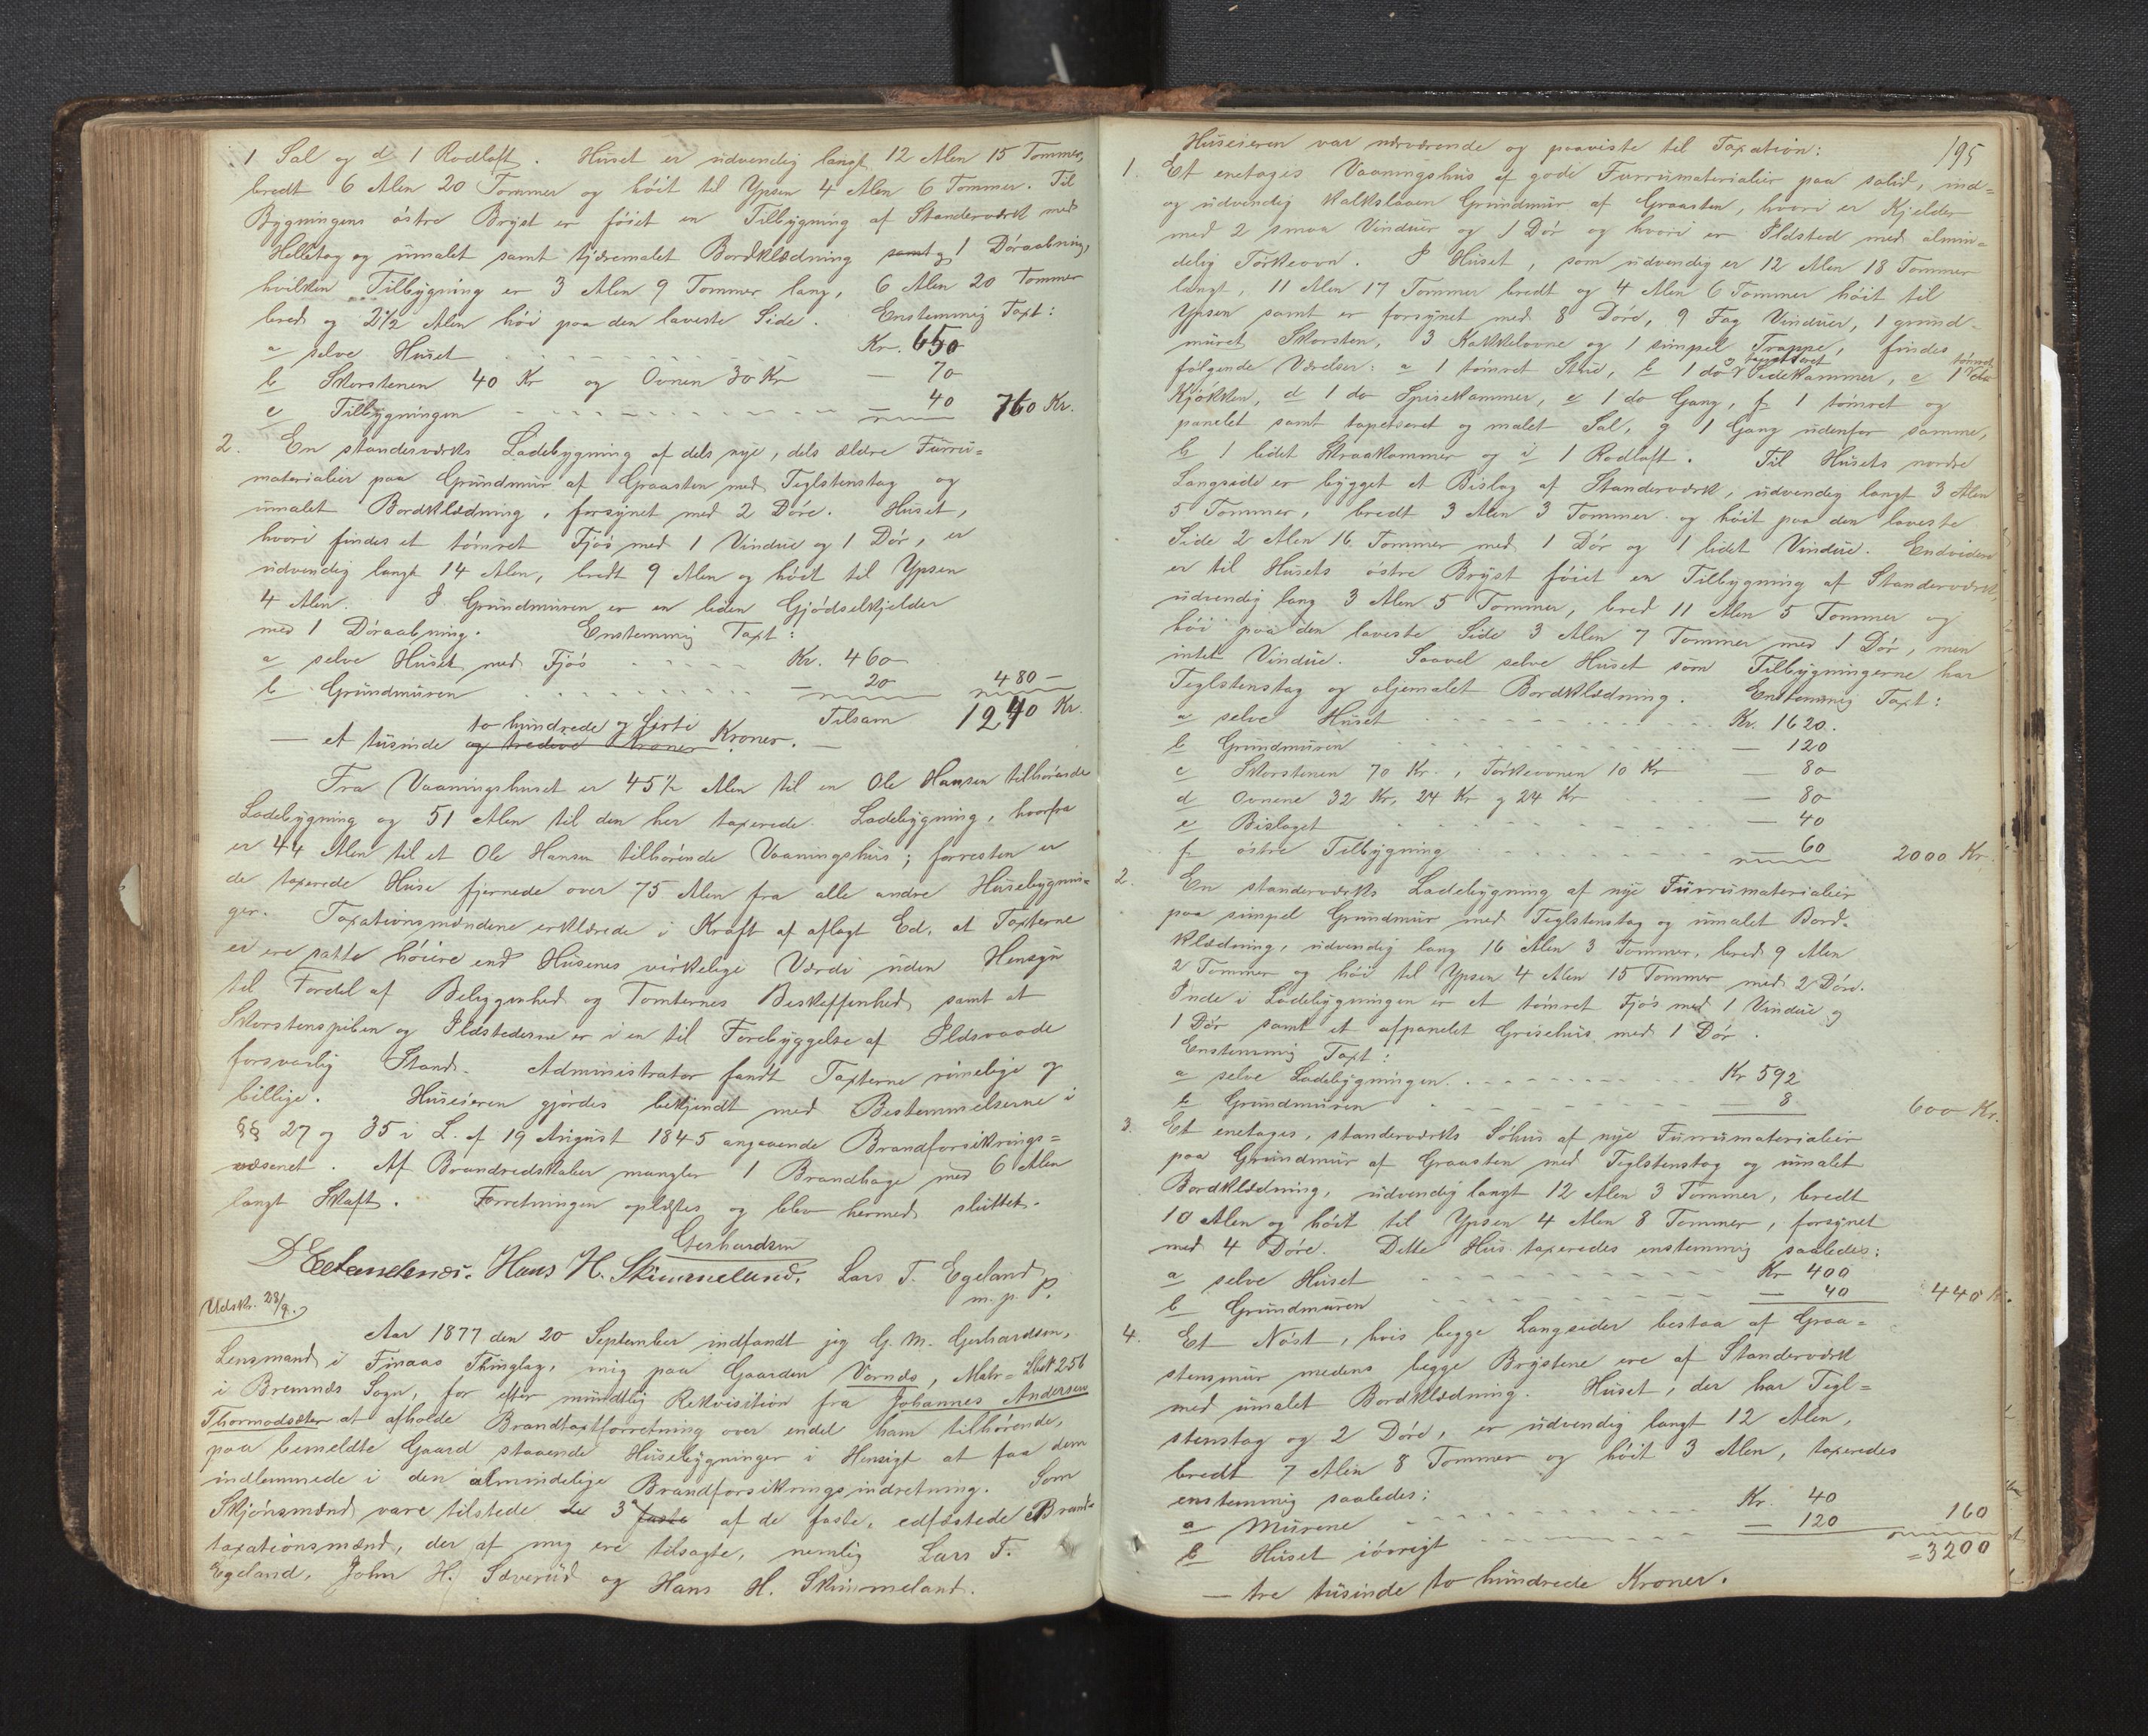 1 Sal og d 1 Rodloft. Huset er udvendig langt 12 Alen 15 Tommer,
bredt 6 Alen 20 Tommer og höit til Ypsen 4 Alen 6 Tommer. Til
Bygningens östre Bryst er föiet en Tilbygning af Standerværk med
Helletag og umalet samt tjæremalet Bordklædning samt og 1 Döraabning,
hvilken Tilbygning er 3 Alen 9 Tommer lang, 6 Alen 20 Tommer
bred og 2 1/2 Alen höi paa den laveste Side. Enstemmig Taxt:
a selve Huset Kr. 650
b Skorstenen 40 Kr og Ovnen 30 Kr — 70
c Tilbygningen — 40 760 Kr.
2. En standerværks Ladebygning af dels nye, dels ældre Furru=
materialier paa Grundmur af Graasten med Teglstenstag og
umalet Bordklædning, forsynet med 2 Döre. Huset,
hvori findes et tömret Fjös med 1 Vindue og 1 Dör, er
udvendig langt 14 Alen, bredt 9 Alen og höit til Ypsen
4 Alen. I Grundmuren er en liden Gjödselkjelder
med 1 Döraabning. Enstemmig Taxt:
a selve Huset med Fjös Kr. 460
b Grundmuren — 20 480 —
Tilsam 1240 Kr.
to hundrede og firti
— et tusinde og tredive Kroner Kroner. —
Fra Vaaningshuset er 45 1/2 Alen til en Ole Hansen tilhörende
Ladebygning og 51 Alen til den her taxerede Ladebygning, hvorfra
er 44 Alen til et Ole Hansen tilhörende Vaaningshus; forresten er
de taxerede Huse fjernede over 75 Alen fra alle andre Husebygnin=
ger. Taxationsmændene erklærede i Kraft af aflagt Ed, at Taxterne
ei ere satte höiere end Husenes virkelige Værdi uden Hensyn
til Fordel af Beliggenhed og Tomternes Beskaffenhed samt at
Skorstenspiben og Ildstederne er i en til Forebyggelse af Ildsvaade
forsvarlig Stand. Administrator fandt Taxterne rimelige og
billige. Huseieren gjordes bekjendt med Bestemmelserne i
§§ 27 og 35 i L. af 19 August 1845 angaaende Brandforsikrings=
væsenet. Af Brandredskaber mangler 1 Brandhage med 6 Alen
langt Skaft. Forretningen oplæstes og blev hermed sluttet.
Gerhardsen
Hans H. Skimmeland. Lars T. Egeland
m. p. P.
Udskr. 28/9.
Aar 1877 den 20 September indfandt jeg G. M. Gerhardsen,
Lensmand i Finaas Thinglag, mig paa Gaarden Vornæs, Matr= No 256
i Bremnæs Sogn, for efter mundtlig Rekvisition fra Johannes Andersen
Thormodsæter at afholde Brandtaxtforretning over endel ham tilhörende,
paa bemeldte Gaard staaende Husebygninger i Hensigt at faa dem
indlemmede i den almindelige Brandforsikringsindretning. Som
Skjönsmænd vare tilstede de 3 faste af de faste, edfæstede Brand=
taxationsmænd, der af mig ere tilsagte, nemlig Lars T.
Egeland, John H. Sæveriid og Hans H. Skimmeland.
195
Huseieren var nærværende og paaviste til Taxation:
1. Et enetages Vaaningshus af gode Furrumaterialier paa solid, ind=
og udvendig kalkslaaen Grundmur af Graasten, hvori er Kjelder
med 2 smaa Vinduer og 1 Dör og hvori er Ildsted med almin=
delig Törkeovn. I Huset, som udvendig er 12 Alen 18 Tommer
langt, 11 Alen 17 Tommer bredt og 4 Alen 6 Tommer höit til
Ypsen samt er forsynet med 8 Döre, 9 Fag Vinduer, 1 grund=
muret Skorsten, 3 Kakkelovne og 1 simpel Trappe, findes
og tapetseret tömret
fölgende Værelser: a 1 tömret Stue, b 1 do Sidekammer, c 1 do
Kjökken, d 1 do Spisekammer, e 1 do Gang, f 1 tömret og
panelet samt tapetseret og malet Sal, g 1 Gang udenfor samme,
h 1 lidet Skraakammer og i 1 Rodloft. Til Husets nordre
Langside er bygget et Bislag af Standerværk, udvendig langt 3 Alen
5 Tommer, bredt 3 Alen 3 Tommer og höit paa den laveste
Side 2 Alen 16 Tommer med 1 Dör og 1 lidet Vindue. Endvidere
er til Husets östre Bryst föiet en Tilbygning af Standerværk
udvendig lang 3 Alen 5 Tommer, bred 11 Alen 5 Tommer og
höi paa den laveste Side 3 Alen 7 Tommer med 1 Dör, men
intet Vindue. Saavel selve Huset som Tilbygningerne har
Teglstenstag og oljemalet Bordklædning. Enstemmig Taxt:
a selve Huset Kr. 1620.
b Grundmuren — 120
c Skorstenen 70 Kr., Törkeovnen 10 Kr — 80
d Ovnene 32 Kr, 24 Kr og 24 Kr — 80
e Bislaget — 40
f östre Tilbygning 60 2000 Kr.
2. En standerværks Ladebygning af nye Furrumaterialier
paa simpel Grundmur med Teglstenstag og umalet Bord=
klædning, udvendig lang 16 Alen 3 Tommer, bred 9 Alen
2 Tommer og höi til Ypsen 4 Alen 15 Tommer med 2 Döre.
Inde i Ladebygningen er et tömret Fjös med 1 Vindue og
1 Dör samt et afpanelet Grisehus med 1 Dör.
Enstemmig Taxt:
a selve Ladebygningen Kr 592
b Grundmuren — 8 600 Kr.
3. Et enetages, standerværks Söhus af nye Furrumaterialier
paa Grundmur af Graasten med Teglstenstag og umalet
Bordklædning, udvendig langt 12 Alen 3 Tommer, bredt
10 Alen og höit til Ypsen 4 Alen 8 Tommer, forsynet
med 4 Döre. Dette Hus taxeredes enstemmig saaledes:
a selve Huset Kr 400
b Grundmuren — 40 440 Kr.
4. Et Nöst, hvis begge Langsider bestaa af Graa=
stensmur medens begge Brystene ere af Standerværk
med umalet Bordklædning. Huset, der har Tegl=
stenstag og 2 Döre, er udvendig langt 12 Alen,
bredt 7 Alen 8 Tommer og höit 3 Alen, taxeredes
enstemmig saaledes:
a Murene Kr. 40
b Huset iövrigt — 120 160
=3200
— tre tusinde to hundrede Kroner.